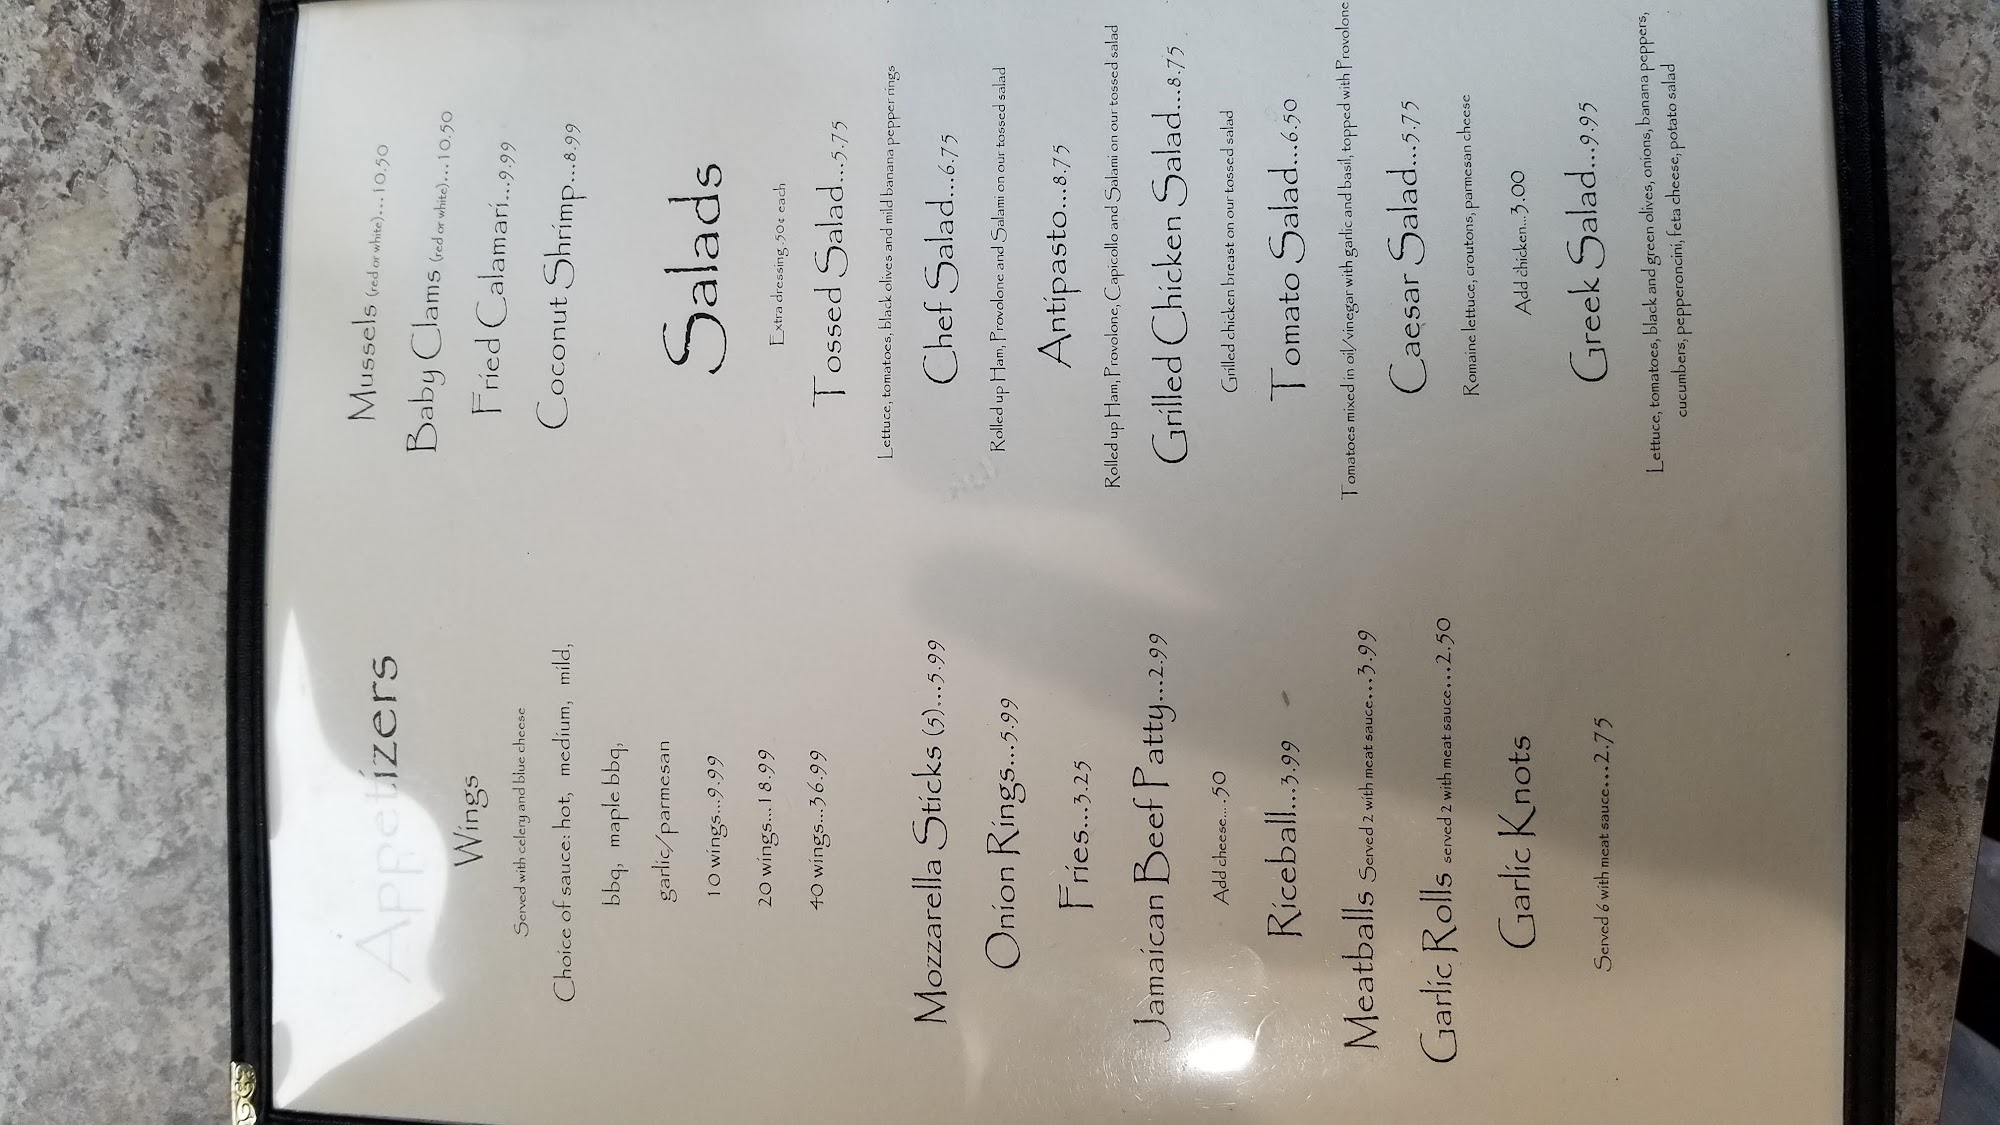 Appetizers
Wings
Served with celery and blue cheese
Choice of sauce: hot, medium, mild,
bbq, maple bbq,
garlic/parmesan
10 wings...9.99
20 wings...18.99
40 wings...36.99
Mozzarella Sticks (5)...5.99
Onion Rings...5.99
Fries...3.25
Jamaican Beef Patty...2.99
Add cheese....50
Riceball...3.99
Meatballs Served 2 with meat sauce...3.99
Garlic Rolls served 2 with meat sauce...2.50
Garlic Knots
Served 6 with meat sauce...2.75
Mussels (red or white)...10.50
Baby Clams (red or white)...10.50
Fried Calamari...9.99
Coconut Shrimp...8.99
Salads
Extra dressing .50¢ each
Tossed Salad...5.75
Lettuce, tomatoes, black olives and mild banana pepper rings
Chef Salad...6.75
Rolled up Ham, Provolone and Salami on our tossed salad
Antipasto...8.75
Rolled up Ham, Provolone, Capicollo and Salami on our tossed salad
Grilled Chicken Salad...8.75
Grilled chicken breast on our tossed salad
Tomato Salad...6.50
Tomatoes mixed in oil/vinegar with garlic and basil, topped with Provolone
Caesar Salad...5.75
Romaine lettuce, croutons, parmesan cheese
Add chicken...3.00
Greek Salad...9.95
Lettuce, tomatoes, black and green olives, onions, banana peppers,
cucumbers, pepperoncini, feta cheese, potato salad